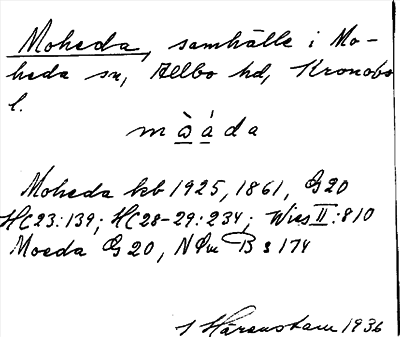 Moheda, samhälle i Mo-
heda sn, Allbo hd, Kronobo
l.
mòá da
Moheda kb 1925, 1861, G20
HC23:139; HC28-29:234; Wies II:810
Moeda G 20, NSm B s 174
Härenstam 1936